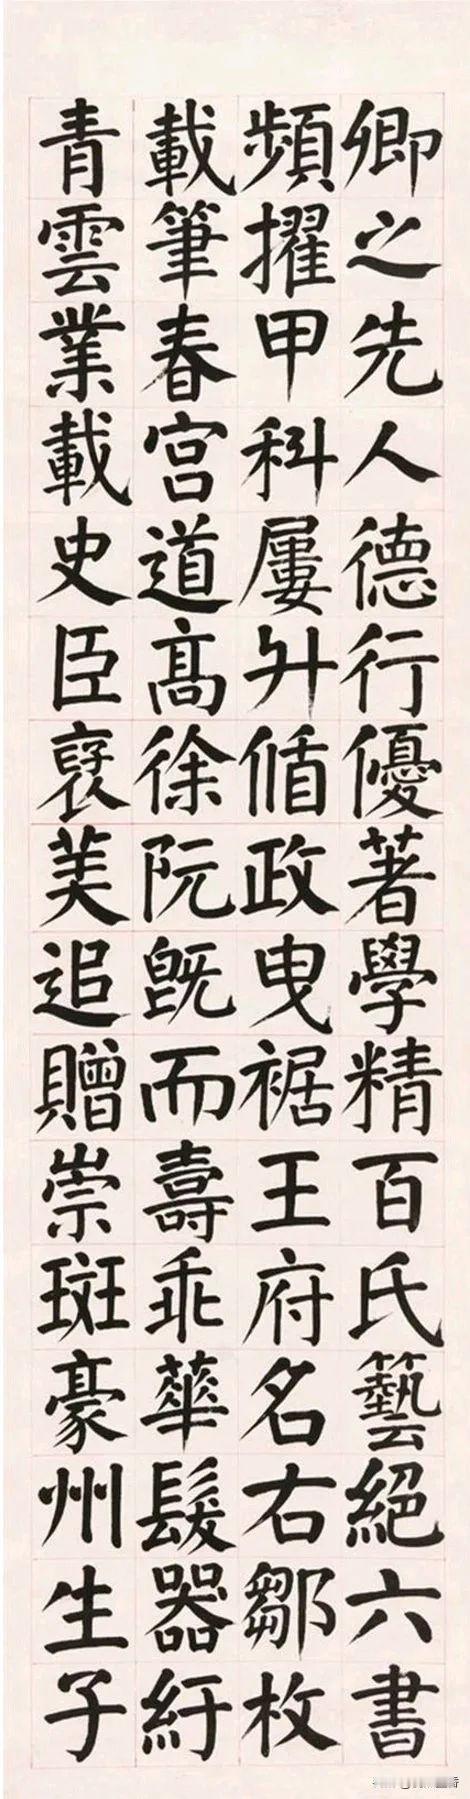 卿之先人德行優著學精百氏藝絕六書
頻擢甲科屢升偱政曳裾王府名右鄒枚
載筆春宮道髙徐阮既而壽乖華髮器紆
青雲業載史臣褒美追贈崇斑豪州生子